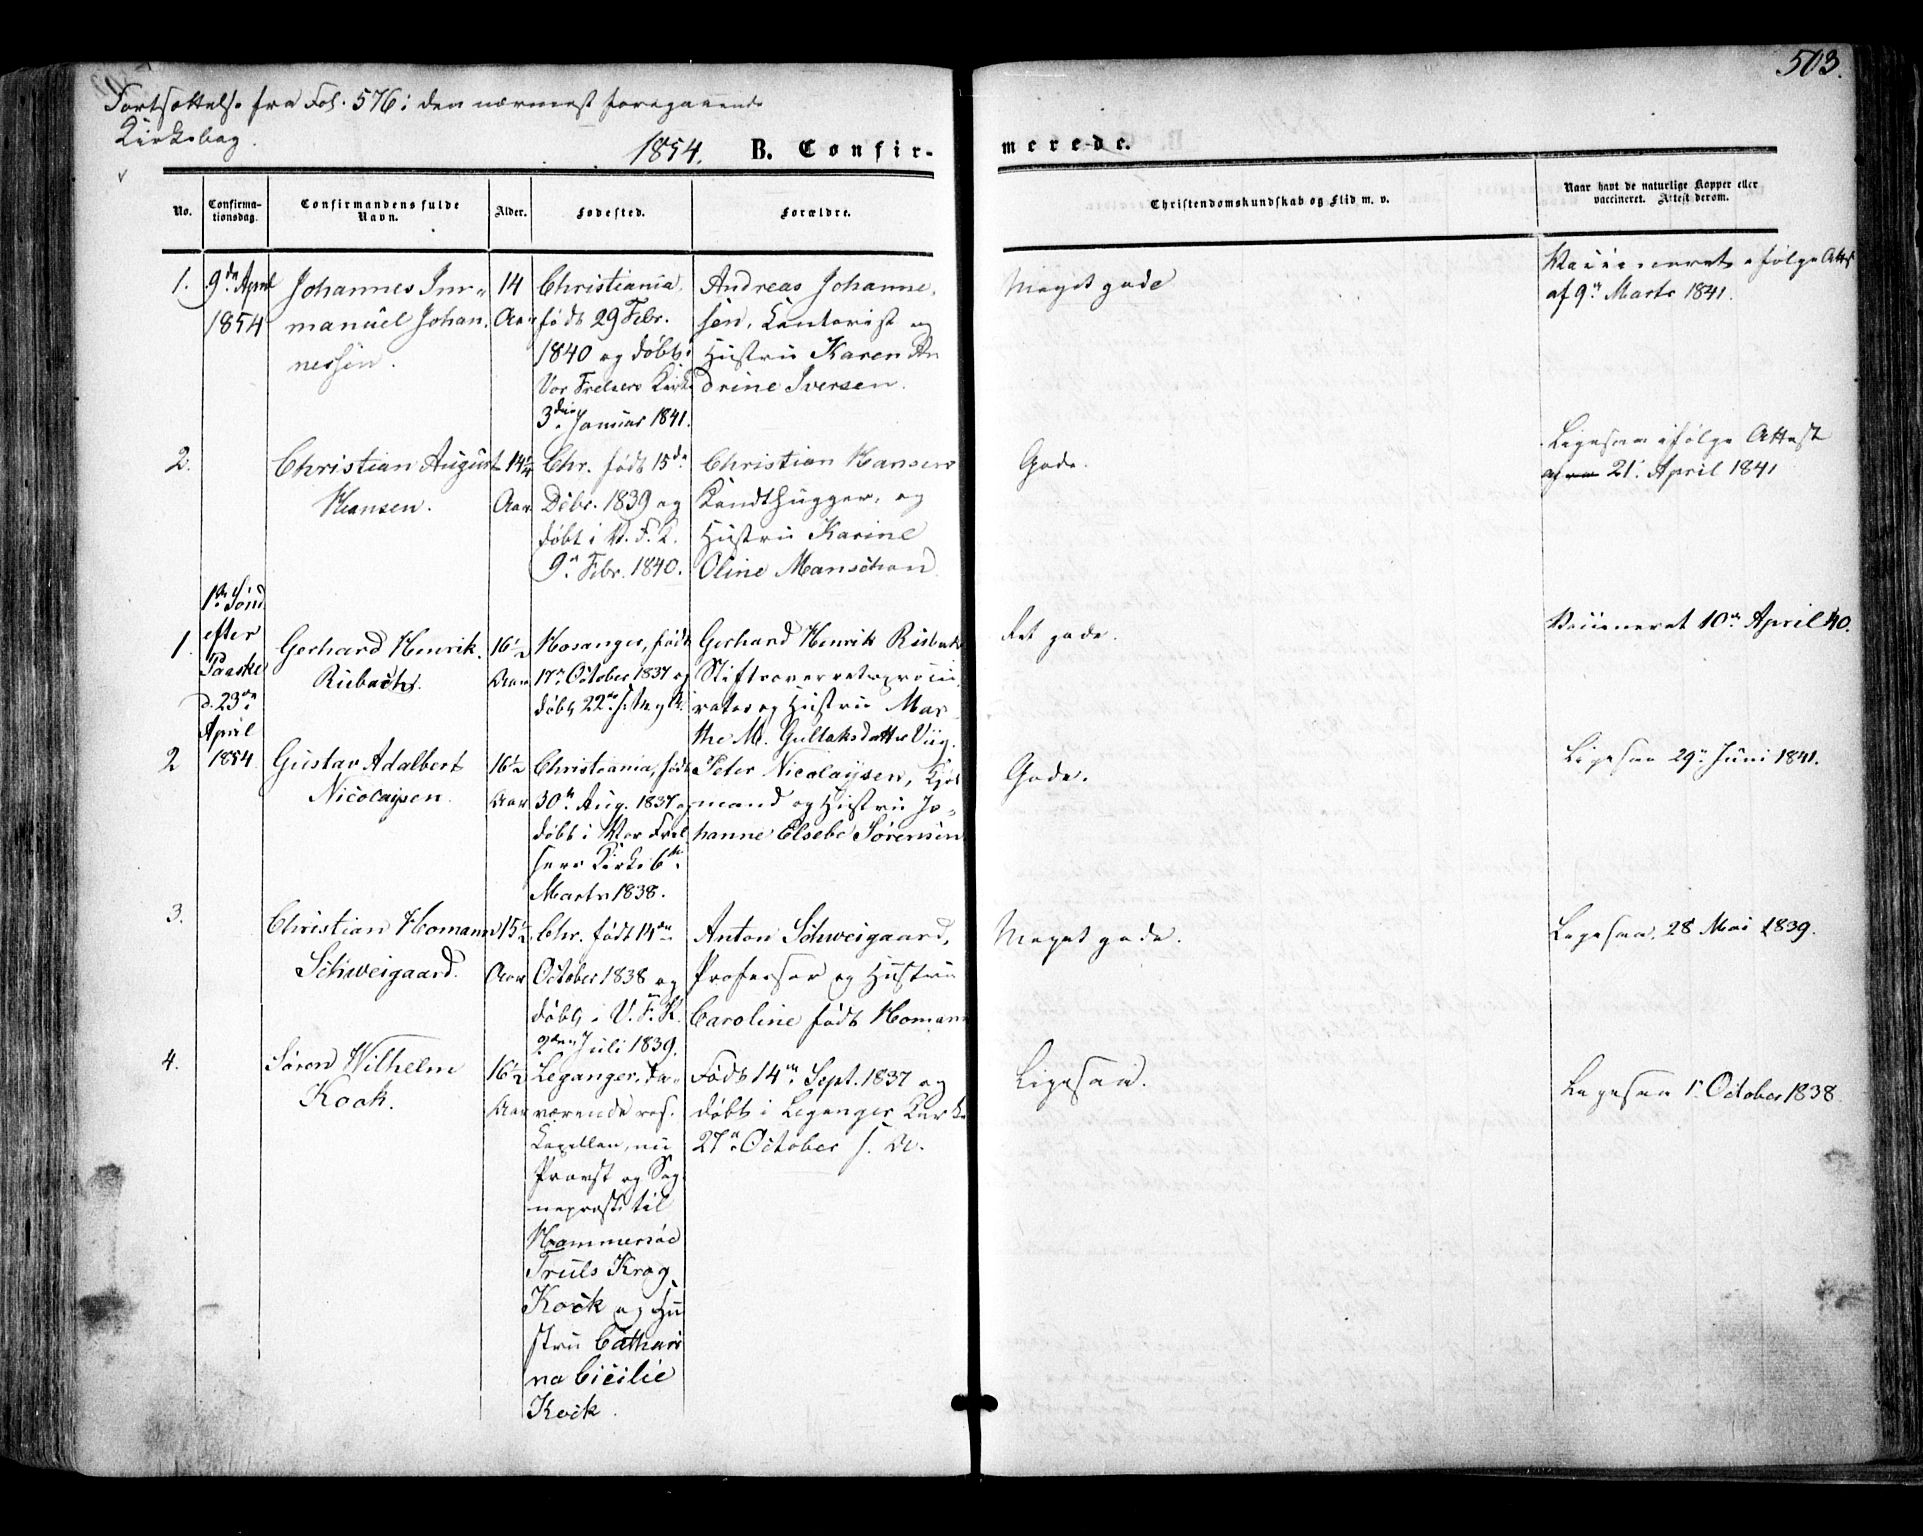 503.
Fortsættelse fra Fol. 576 i den nærmest foregaaende
Kirkebog.
1854. B. Confir-
merede.
No.
Confirma-
tionsdag.
Confirmandens fulde
Navn.
Alder.
Fødested.
Forældre.
Christendomskundskab og Flid m. v.
Naar havt de naturlige Kopper eller
vaccineret. Attest derom.
1.
9de April
1854
Johannes Im-
manuel Johan-
nessen.
14
Aar
Christiania,
født 29 Febr.
1840 og døbt i
Vor Frelsers Kirke
3die Januar 1841.
Andreas Johanne-
sen, Contorist og
Hustru Karen An
drine Iversen.
Meget gode
Vaccineret ifølge Attest
af 9n Marts 1841.
2.
Christian August
Hansen.
14 1/4
Aar
Chr. født 15de
Debr. 1839 og
døbt i V. F. K.
9n Febr. 1840.
Christian Hansen
Kandthugger, og
Hustru Karine
Oline
Gode.
Ligesaa ifølge Attest
21. April 1841
1ste Sønd.
efter
Paaske
d. 23de
April
1854.
1.
Gerhard Henrik
16 1/2
Aar
Hosanger, født
17n October 1837 og
døbt 22de s.
Gerhard Henrik
Stiftsoverretsprocu-
rator og Hustru Mar-
the M. Gullaksdatter Viig.
Ret gode.
Vaccineret 10n April 40.
2
Gustav Adalbert
Nicolaysen.
16 1/2
Aar
Christiania, født
30n Aug. 1837 og
døbt i Vor Frel
sers Kirke 6te
Marts 1838.
Peter Nicolaysen, Kjøb
mand og Hustru Jo-
hanne Elsebe Sørensen
Gode.
Ligesaa 29n Juni 1841.
3.
Christian Homann
Schweigaard.
15 1/2
Aar
Chr. født 14de
October 1838 og
døbt i V. F. K.
2den Juli 1839.
Anton Schweigaard,
Professor og Hustru
Caroline født Homann
Meget gode.
Ligesaa 28 Mai 1839.
4.
Søren Wilhelm
Koch.
16 1/2
Aar
Leganger, da-
værende res.
Capellan, nu
Provst og Sog-
nepræst til
Hammersøe
Truls Krog
Kock og Hu
stru Cathari
na Cicilie
Kock.
Født 14n Sept. 1837 og
døbt i Leganger Kirke
27n October s. A.
Ligesaa.
Ligesaa 1n October 1838.